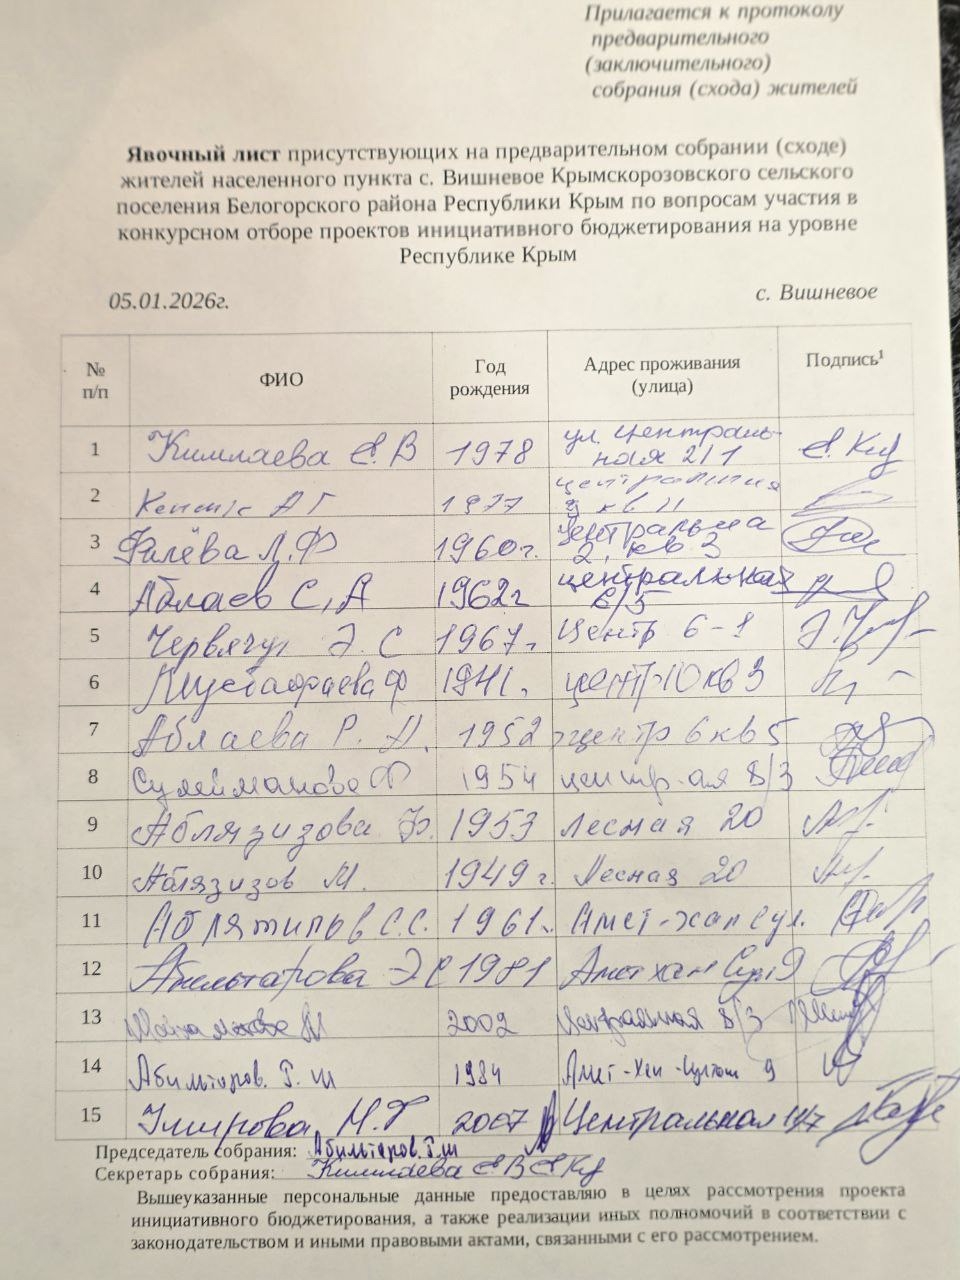 Прилагается к протоколу
предварительного
(заключительного)
собрания (схода) жителей
Явочный лист присутствующих на предварительном собрании (сходе)
жителей населенного пункта с. Вишневое Крымскорозовского сельского
поселения Белогорского района Республики Крым по вопросам участия в
конкурсном отборе проектов инициативного бюджетирования на уровне
Республике Крым
05.01.2026г. с. Вишневое
№ п/п ФИО Год рождения Адрес проживания (улица) Подпись¹
1 Кимлаева Е.В 1978 ул. Централь-
ная 2/1
2 А Г 1977
кв 11
3 Фалёва Л.Ф 1960г. Центральна
2, кв 3
4 Аблаев С,А 1962г центральная
6/5
5 Э. С 1967г. Центр 6-1
6 Мустафаева Ф 1941г. центр 10 кв 3
7 Аблаева Р. А. 1952 центр 6 кв 5
8 Сулейманова Ф 1954 центр-ая 8/3
9 Аблязизова 1953 Лесная 20
10 Аблязизов М. 1949г. Лесная 20
11 С.С. 1961г. Амет-хан сул.
12 Абильтарова Э С 1981 Амет хан Сул 9
13 2002 Центральная 8/3
14 Абильтаров. Т. Ш 1984 Амет-Хан-Султан 9
15 Умирова 2007 Центральная
Председатель собрания: Абильтаров.Т.Ш
Секретарь собрания: Кимлаева Е В
Вышеуказанные персональные данные предоставляю в целях рассмотрения проекта
инициативного бюджетирования, а также реализации иных полномочий в соответствии с
законодательством и иными правовыми актами, связанными с его рассмотрением.